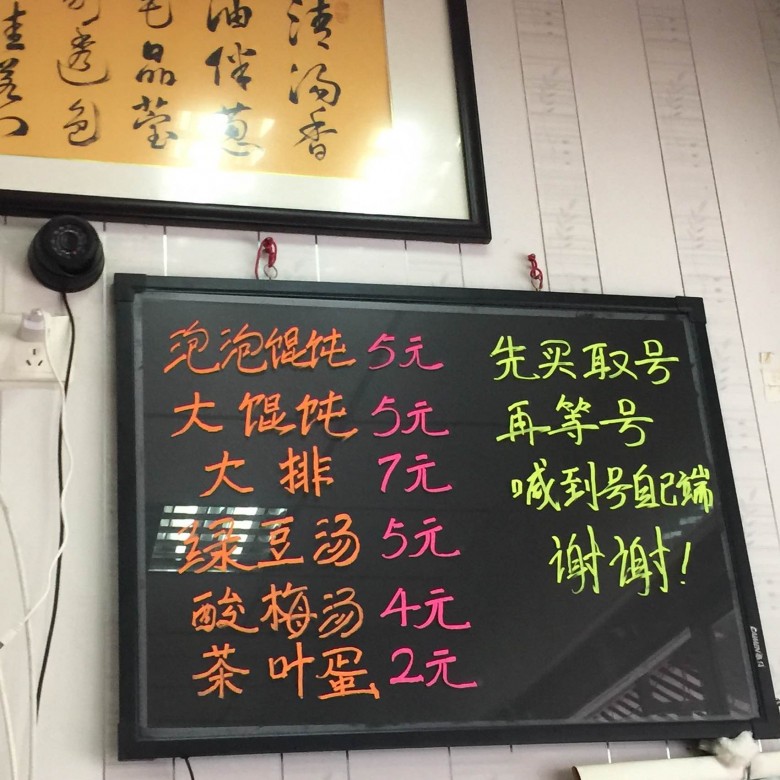 清汤香
油伴葱
毛晶莹
透色
泡泡馄饨 5元
大馄饨 5元
大排 7元
绿豆汤 5元
酸梅汤 4元
茶叶蛋 2元
先买取号
再等号
喊到号自己端
谢谢!